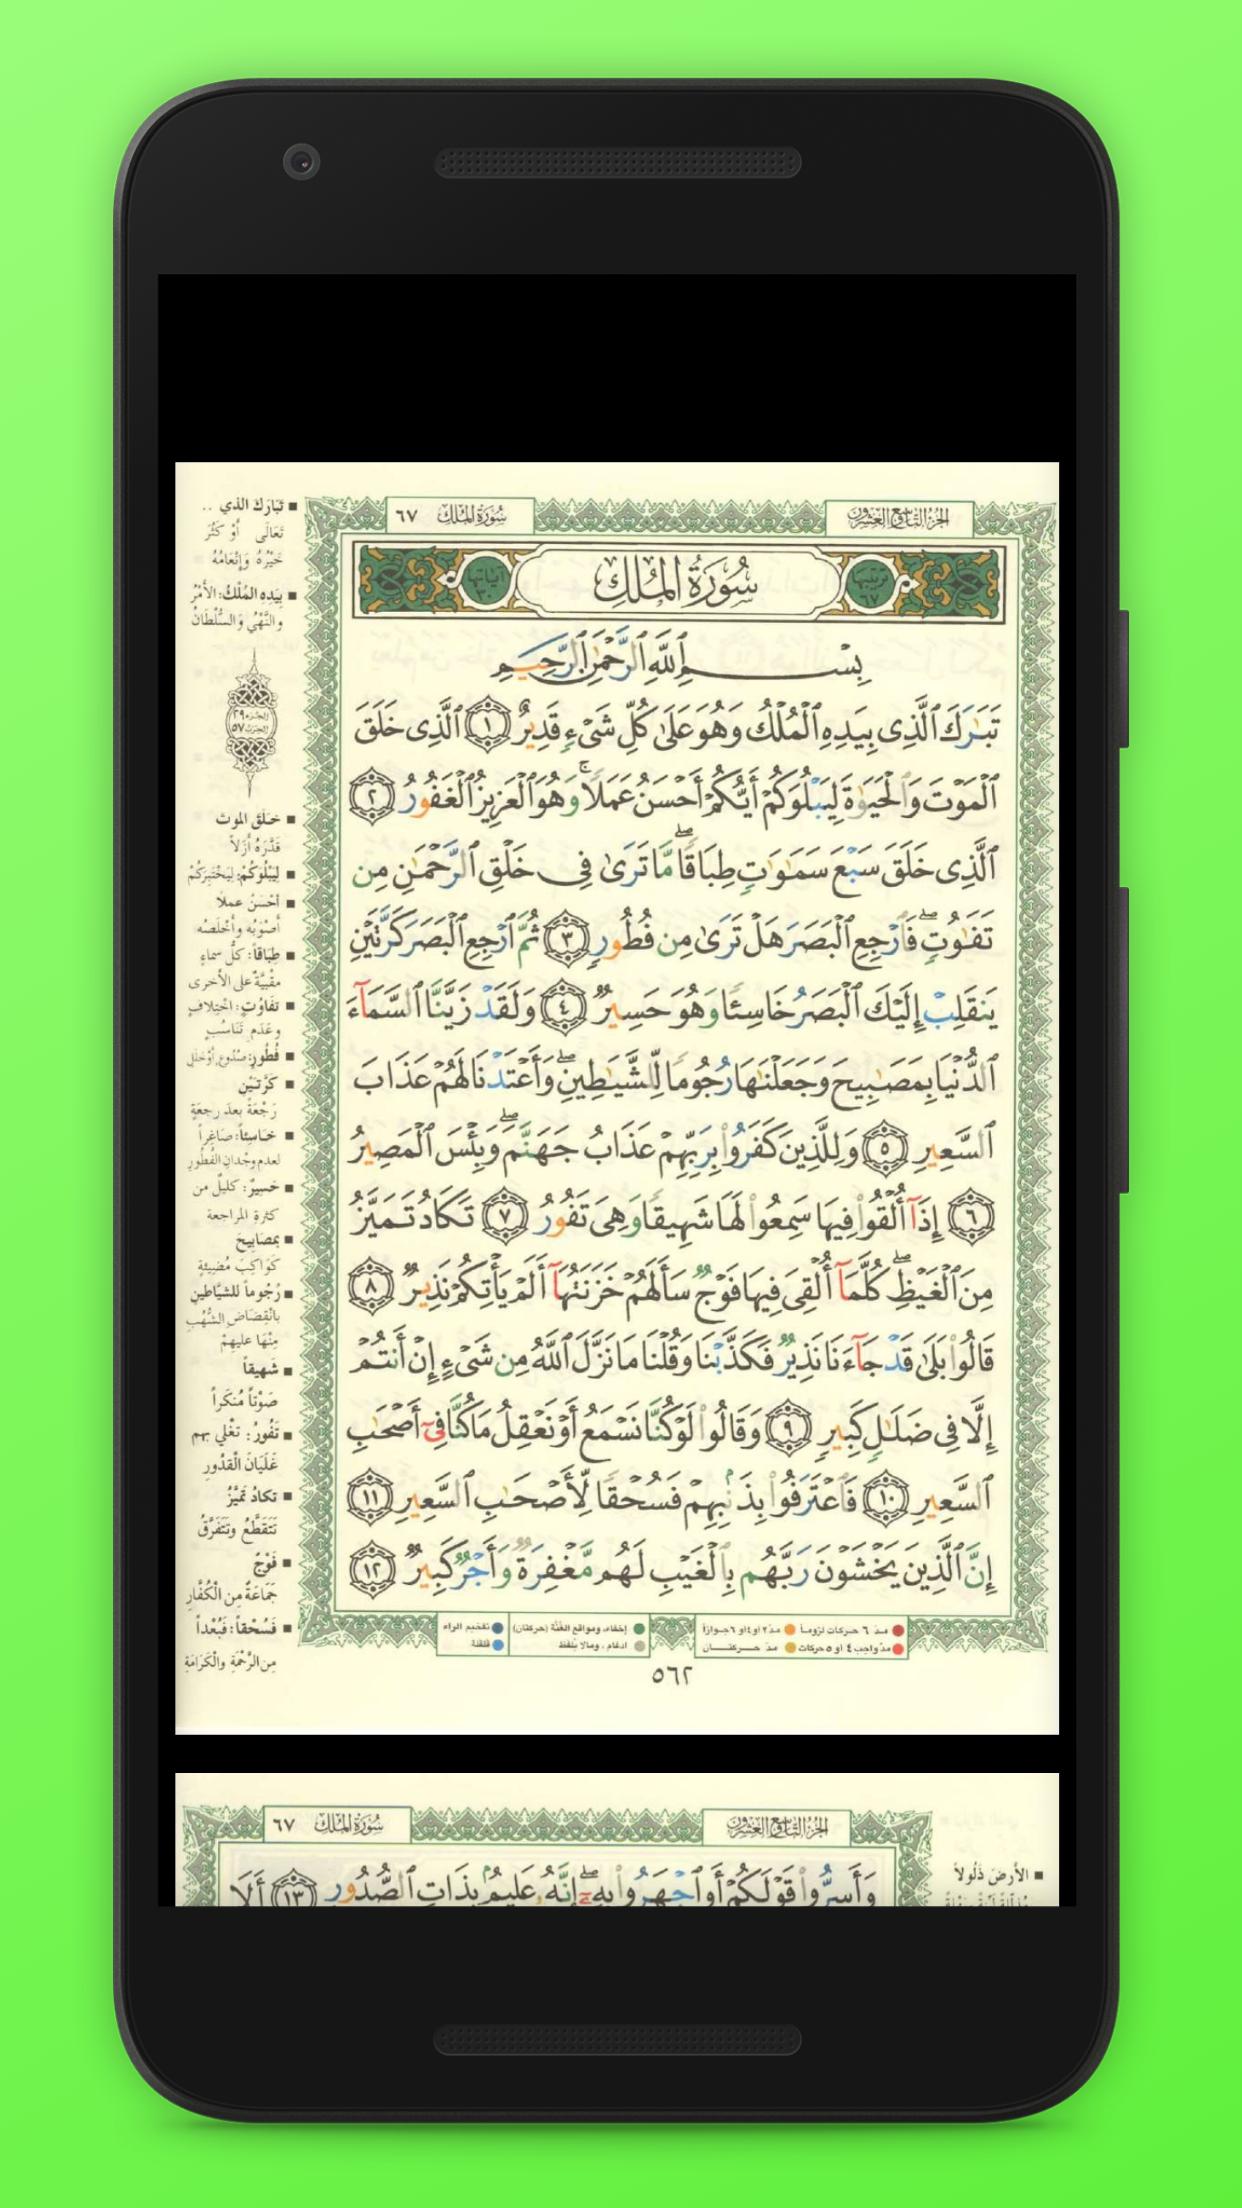 الجزء التاسع والعشرون
سورة الملك ٦٧
ترتيبها ٦٧
سُورَةُ المُلْكِ
آياتها ٣٠
بِسْمِ ٱللَّهِ ٱلرَّحْمَٰنِ ٱلرَّحِيمِ
تَبَٰرَكَ ٱلَّذِى بِيَدِهِ ٱلْمُلْكُ وَهُوَ عَلَىٰ كُلِّ شَىْءٍ قَدِيرٌ ١ ٱلَّذِى خَلَقَ
ٱلْمَوْتَ وَٱلْحَيَوٰةَ لِيَبْلُوَكُمْ أَيُّكُمْ أَحْسَنُ عَمَلًا ۚ وَهُوَ ٱلْعَزِيزُ ٱلْغَفُورُ ٢
ٱلَّذِى خَلَقَ سَبْعَ سَمَٰوَٰتٍ طِبَاقًا ۖ مَّا تَرَىٰ فِى خَلْقِ ٱلرَّحْمَٰنِ مِن
تَفَٰوُتٍ ۖ فَٱرْجِعِ ٱلْبَصَرَ هَلْ تَرَىٰ مِن فُطُورٍ ٣ ثُمَّ ٱرْجِعِ ٱلْبَصَرَ كَرَّتَيْنِ
يَنقَلِبْ إِلَيْكَ ٱلْبَصَرُ خَاسِئًا وَهُوَ حَسِيرٌ ٤ وَلَقَدْ زَيَّنَّا ٱلسَّمَآءَ
ٱلدُّنْيَا بِمَصَٰبِيحَ وَجَعَلْنَٰهَا رُجُومًا لِّلشَّيَٰطِينِ ۖ وَأَعْتَدْنَا لَهُمْ عَذَابَ
ٱلسَّعِيرِ ٥ وَلِلَّذِينَ كَفَرُوا۟ بِرَبِّهِمْ عَذَابُ جَهَنَّمَ ۖ وَبِئْسَ ٱلْمَصِيرُ
٦ إِذَآ أُلْقُوا۟ فِيهَا سَمِعُوا۟ لَهَا شَهِيقًا وَهِىَ تَفُورُ ٧ تَكَادُ تَمَيَّزُ
مِنَ ٱلْغَيْظِ ۖ كُلَّمَآ أُلْقِىَ فِيهَا فَوْجٌ سَأَلَهُمْ خَزَنَتُهَآ أَلَمْ يَأْتِكُمْ نَذِيرٌ ٨
قَالُوا۟ بَلَىٰ قَدْ جَآءَنَا نَذِيرٌ فَكَذَّبْنَا وَقُلْنَا مَا نَزَّلَ ٱللَّهُ مِن شَىْءٍ إِنْ أَنتُمْ
إِلَّا فِى ضَلَٰلٍ كَبِيرٍ ٩ وَقَالُوا۟ لَوْ كُنَّا نَسْمَعُ أَوْ نَعْقِلُ مَا كُنَّا فِىٓ أَصْحَٰبِ
ٱلسَّعِيرِ ١٠ فَٱعْتَرَفُوا۟ بِذَنۢبِهِمْ فَسُحْقًا لِّأَصْحَٰبِ ٱلسَّعِيرِ ١١
إِنَّ ٱلَّذِينَ يَخْشَوْنَ رَبَّهُم بِٱلْغَيْبِ لَهُم مَّغْفِرَةٌ وَأَجْرٌ كَبِيرٌ ١٢
مد ٦ حركات لزوماً
مد ٢ او ٤ او ٦ جوازاً
إخفاء، ومواقع الغُنَّة (حركتان)
تفخيم الراء
مد واجب ٤ او ٥ حركات
مد حركتان
ادغام، ومالا يُلفظ
قلقلة
٥٦٢
تَبَارَكَ الذي ..
تَعَالَى أوْ كَثُرَ
خَيْرُهُ وَإِنْعَامُهُ
بِيَدِهِ المُلْكُ: الأَمْرُ
والنَّهْيُ وَالسُّلْطَانُ
الجزء ٢٩
الحزب ٥٧
خَلَقَ الموت
قَدَّرَهُ أَزَلاً
لِيَبْلُوَكُمْ: لِيَخْتَبِرَكُمْ
أحْسَنُ عملاً
أصْوَبُه وأخْلَصُه
طِبَاقاً: كلُّ سماءٍ
مقْبِيَّةٌ على الأخرى
تفاوُتٍ: اخْتِلافٍ
وعَدَمِ تَنَاسُبٍ
فُطُورٍ: صُدُوعٍ أوْ خَلَلٍ
كَرَّتَيْن
رَجْعَةً بعدَ رجعَةٍ
خاسِئاً: صَاغِراً
لعدم وِجْدانِ الفُطُورِ
حَسِيرٌ: كَلِيلٌ من
كثرةِ المراجعة
بمصَابِيحَ
كَوَاكِبَ مُضِيئةٍ
رُجُوماً للشَّيَاطينِ
بانْقِضَاضِ الشُّهُبِ
مِنْهَا عليهِمْ
شَهيقاً
صَوْتاً مُنكَراً
تَفُورُ: تَغْلي بهم
غَلَيَانَ الْقُدُورِ
تكادُ تَمَيَّزُ
تَتَقَطَّعُ وتَتَفَرَّقُ
فَوْجٌ
جَمَاعَةٌ مِن الْكُفَّارِ
فَسُحْقاً: فَبُعْداً
مِن الرَّحْمَةِ والْكَرَامَةِ
الجزء التاسع والعشرون
سورة الملك ٦٧
وَأَسِرُّوا۟ قَوْلَكُمْ أَوِ ٱجْهَرُوا۟ بِهِۦٓ ۖ إِنَّهُۥ عَلِيمٌۢ بِذَاتِ ٱلصُّدُورِ ١٣ أَلَا
الأرضَ ذَلُولاً